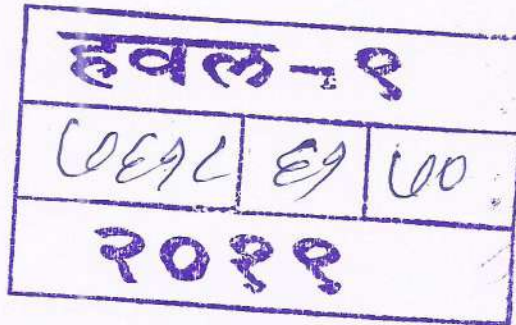 हवल-१
७६१८ ६१ ७०
२०११